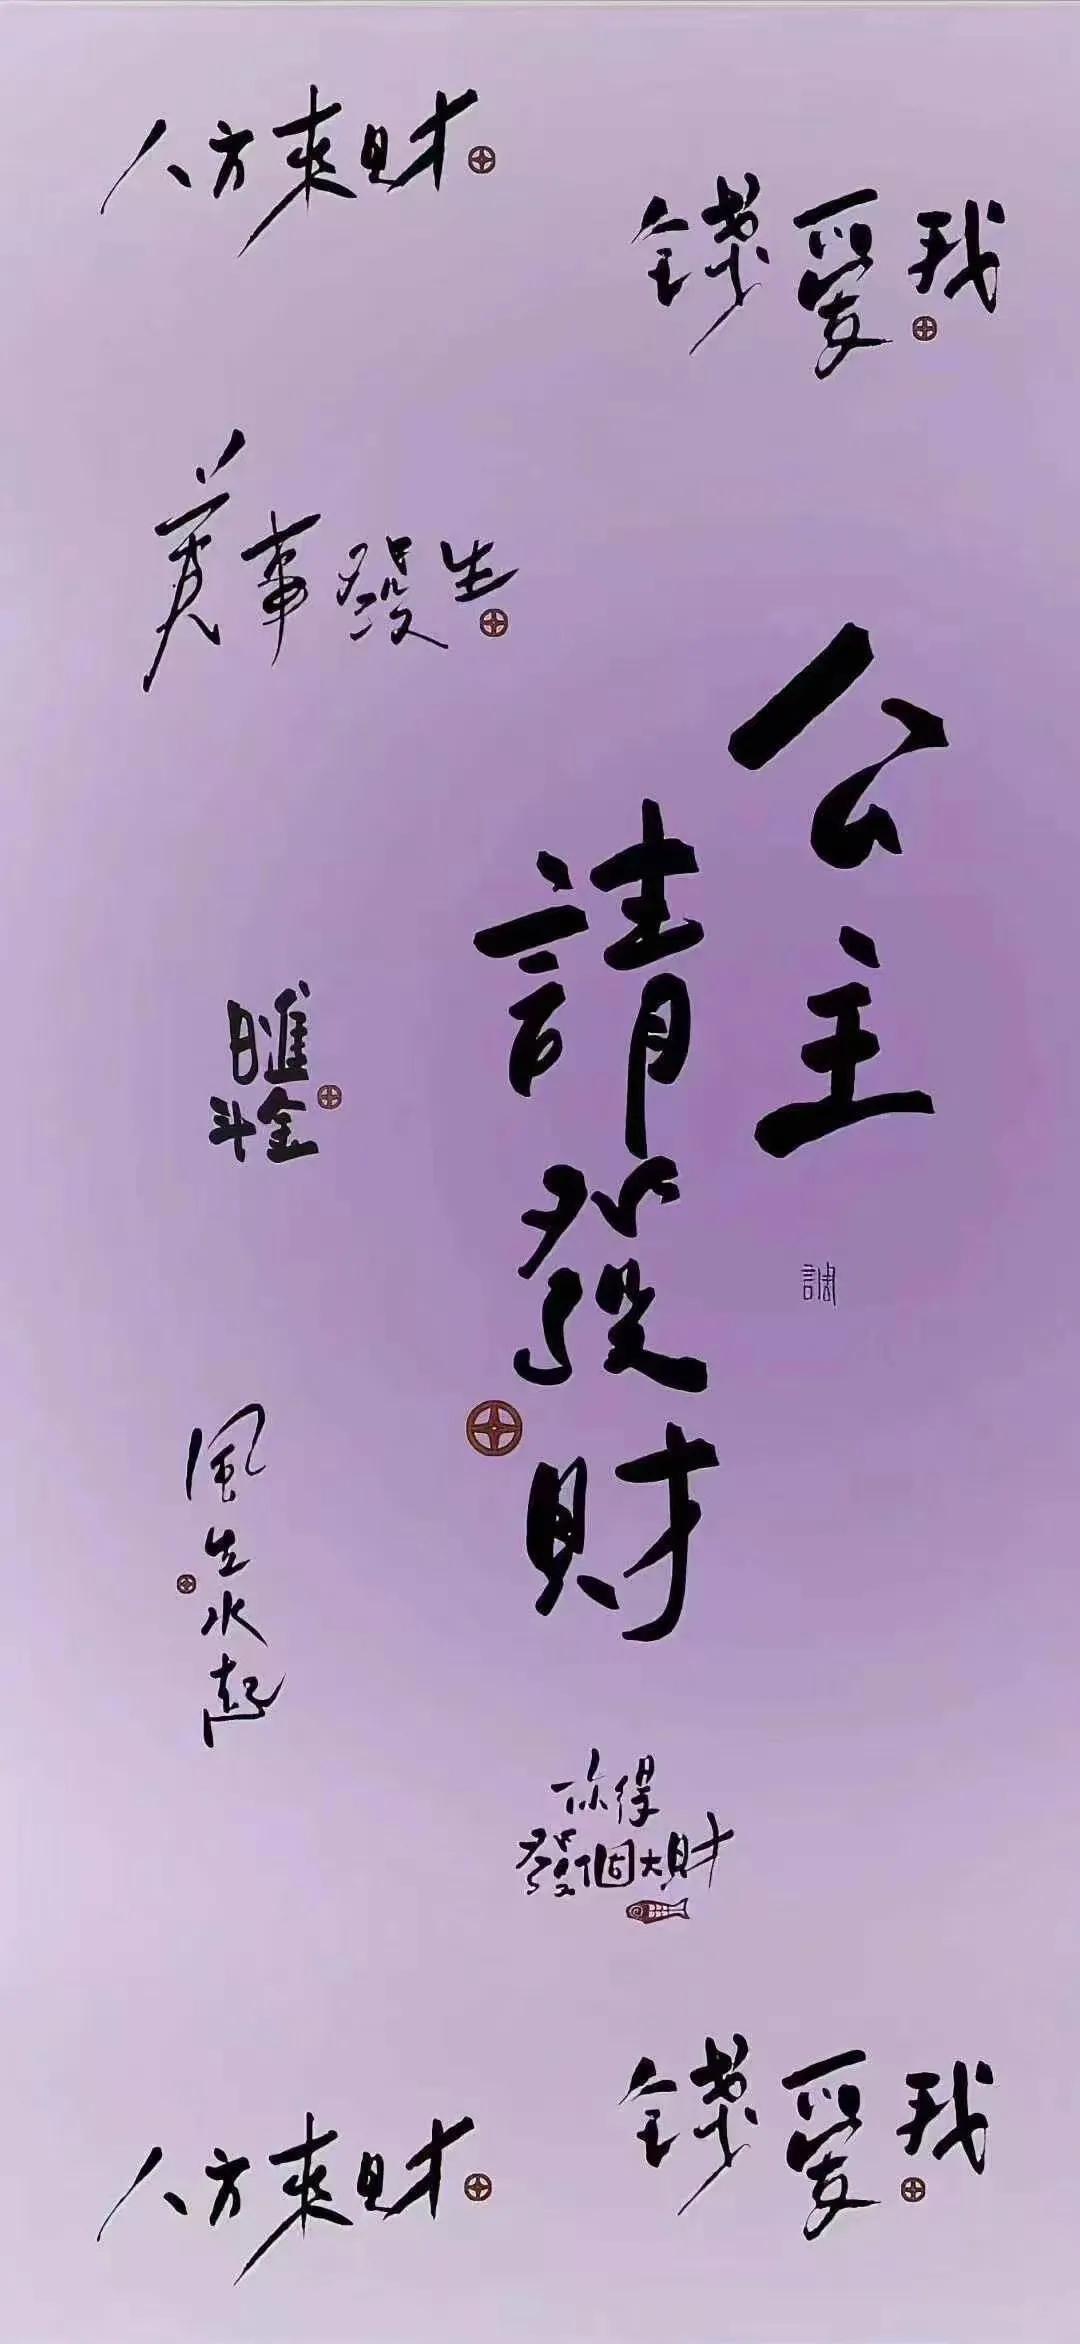 八方來財
錢愛我
美事發生
公主
請發財
日進
斗金
風生水起
你得
發個大財
錢愛我
八方來財